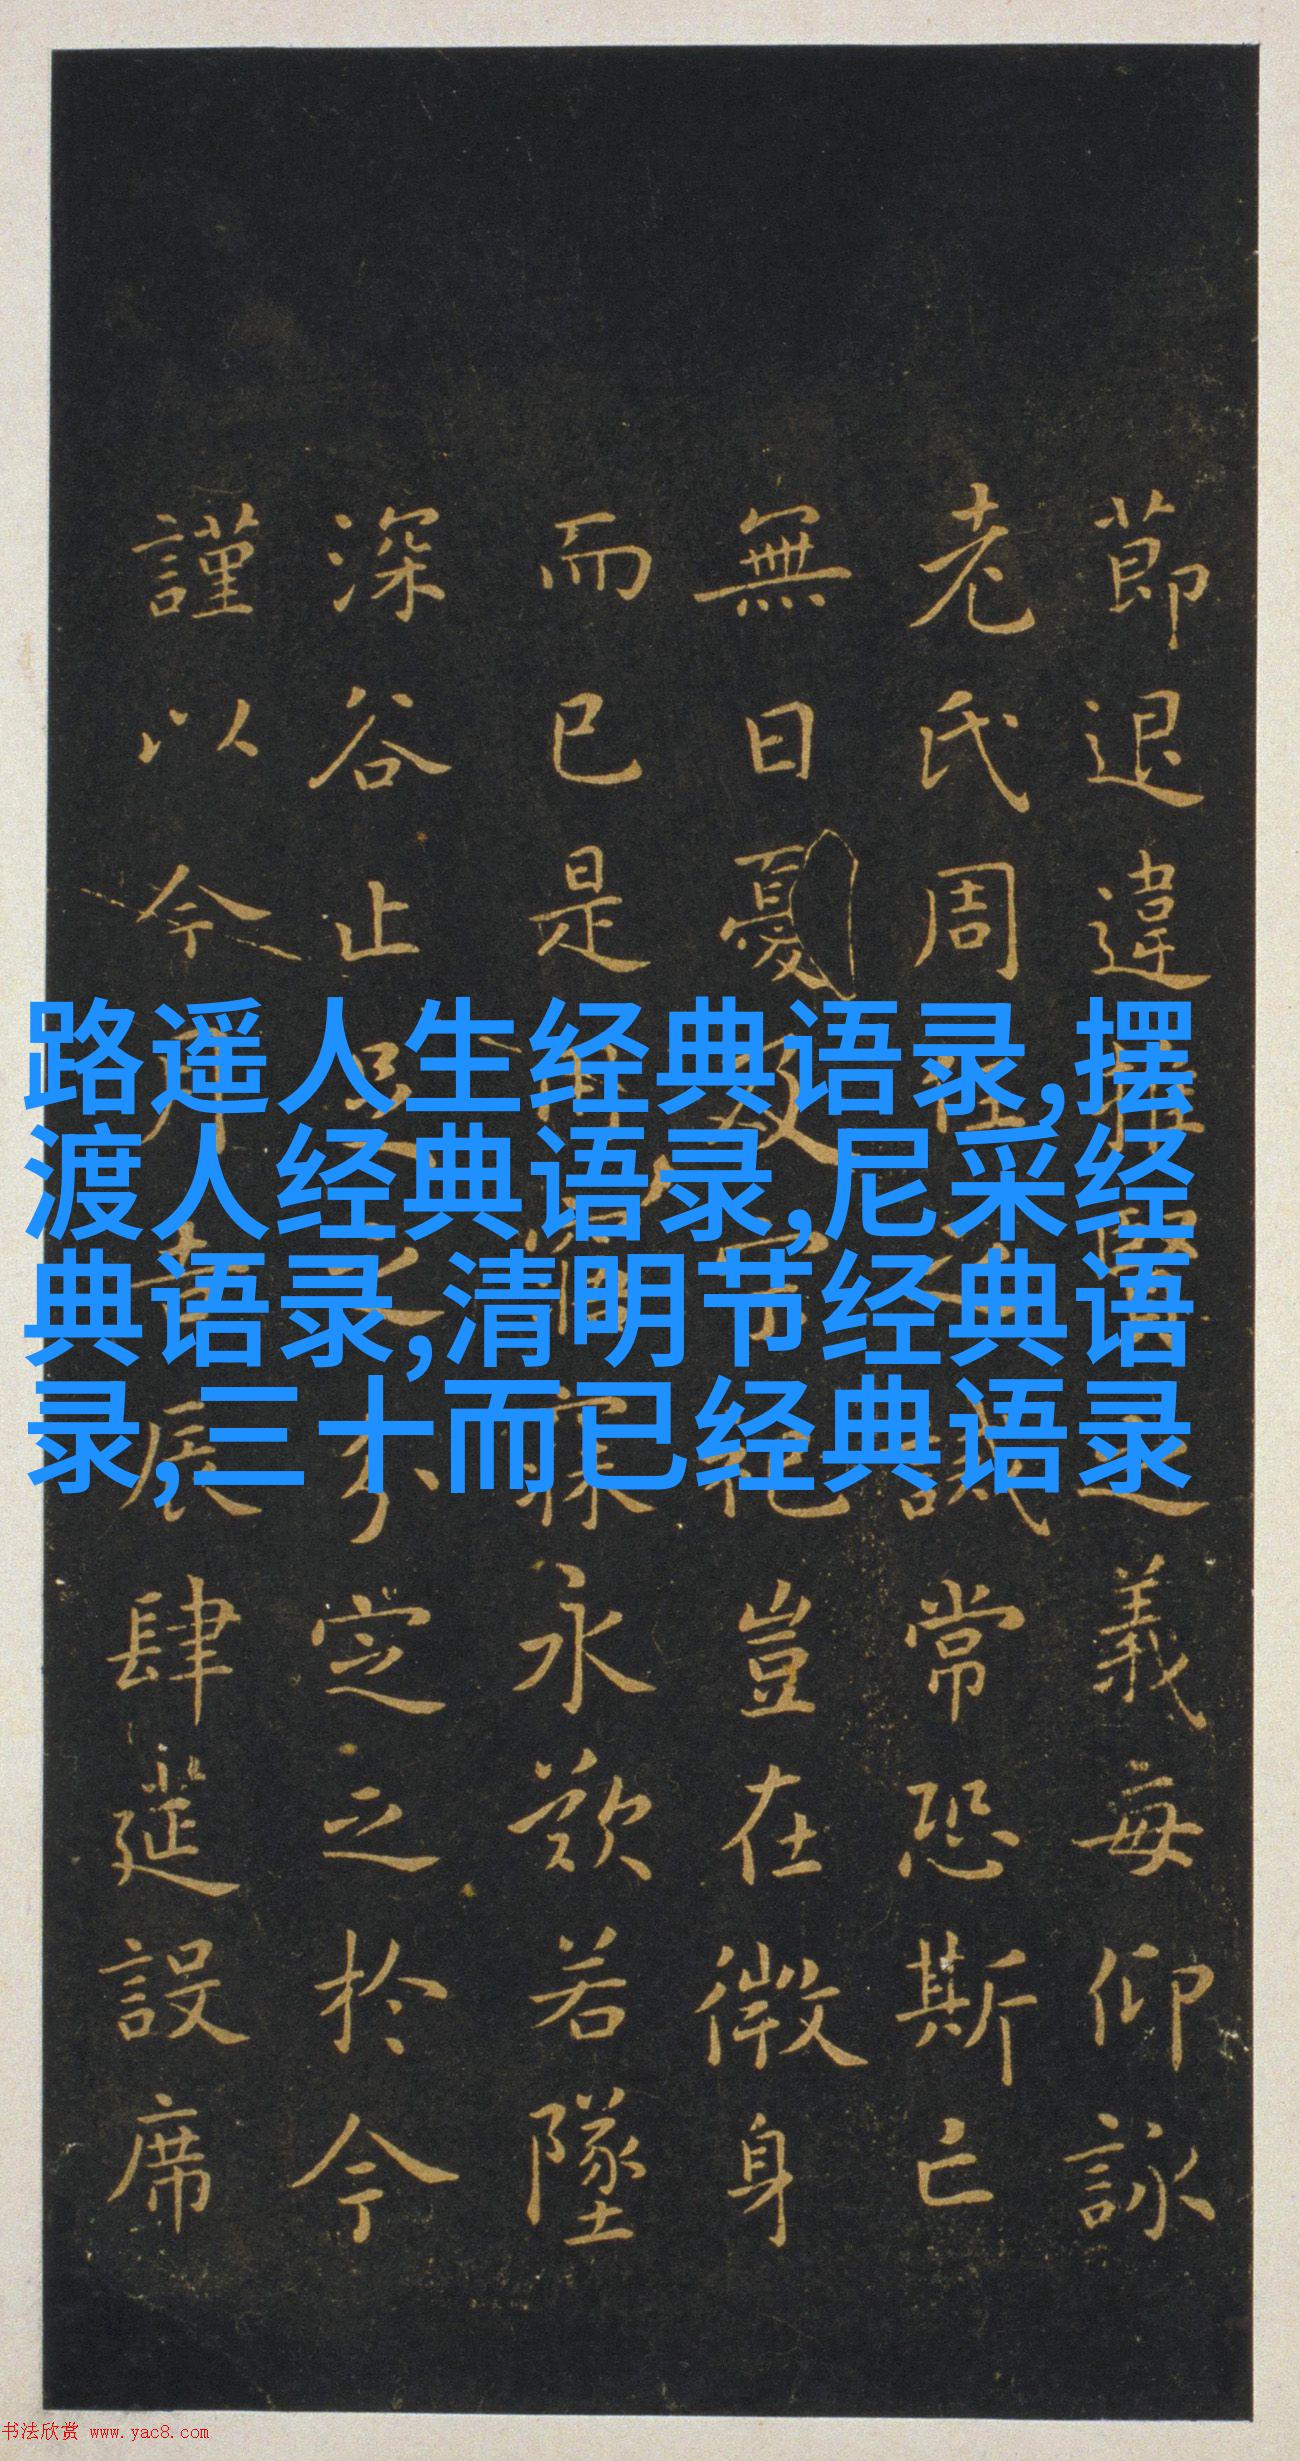 節退違推賢之義每仰詠
老氏周任之誡常恐斯亡
無日憂及宗祀豈在微身
而已是用寤寐永歎若墜
深谷止足之分定之於今
謹以今月吉辰肆筵設席
路遥人生经典语录,摆
渡人经典语录,尼采经
典语录,清明节经典语
录,三十而已经典语录
书法欣赏 www.yac8.com